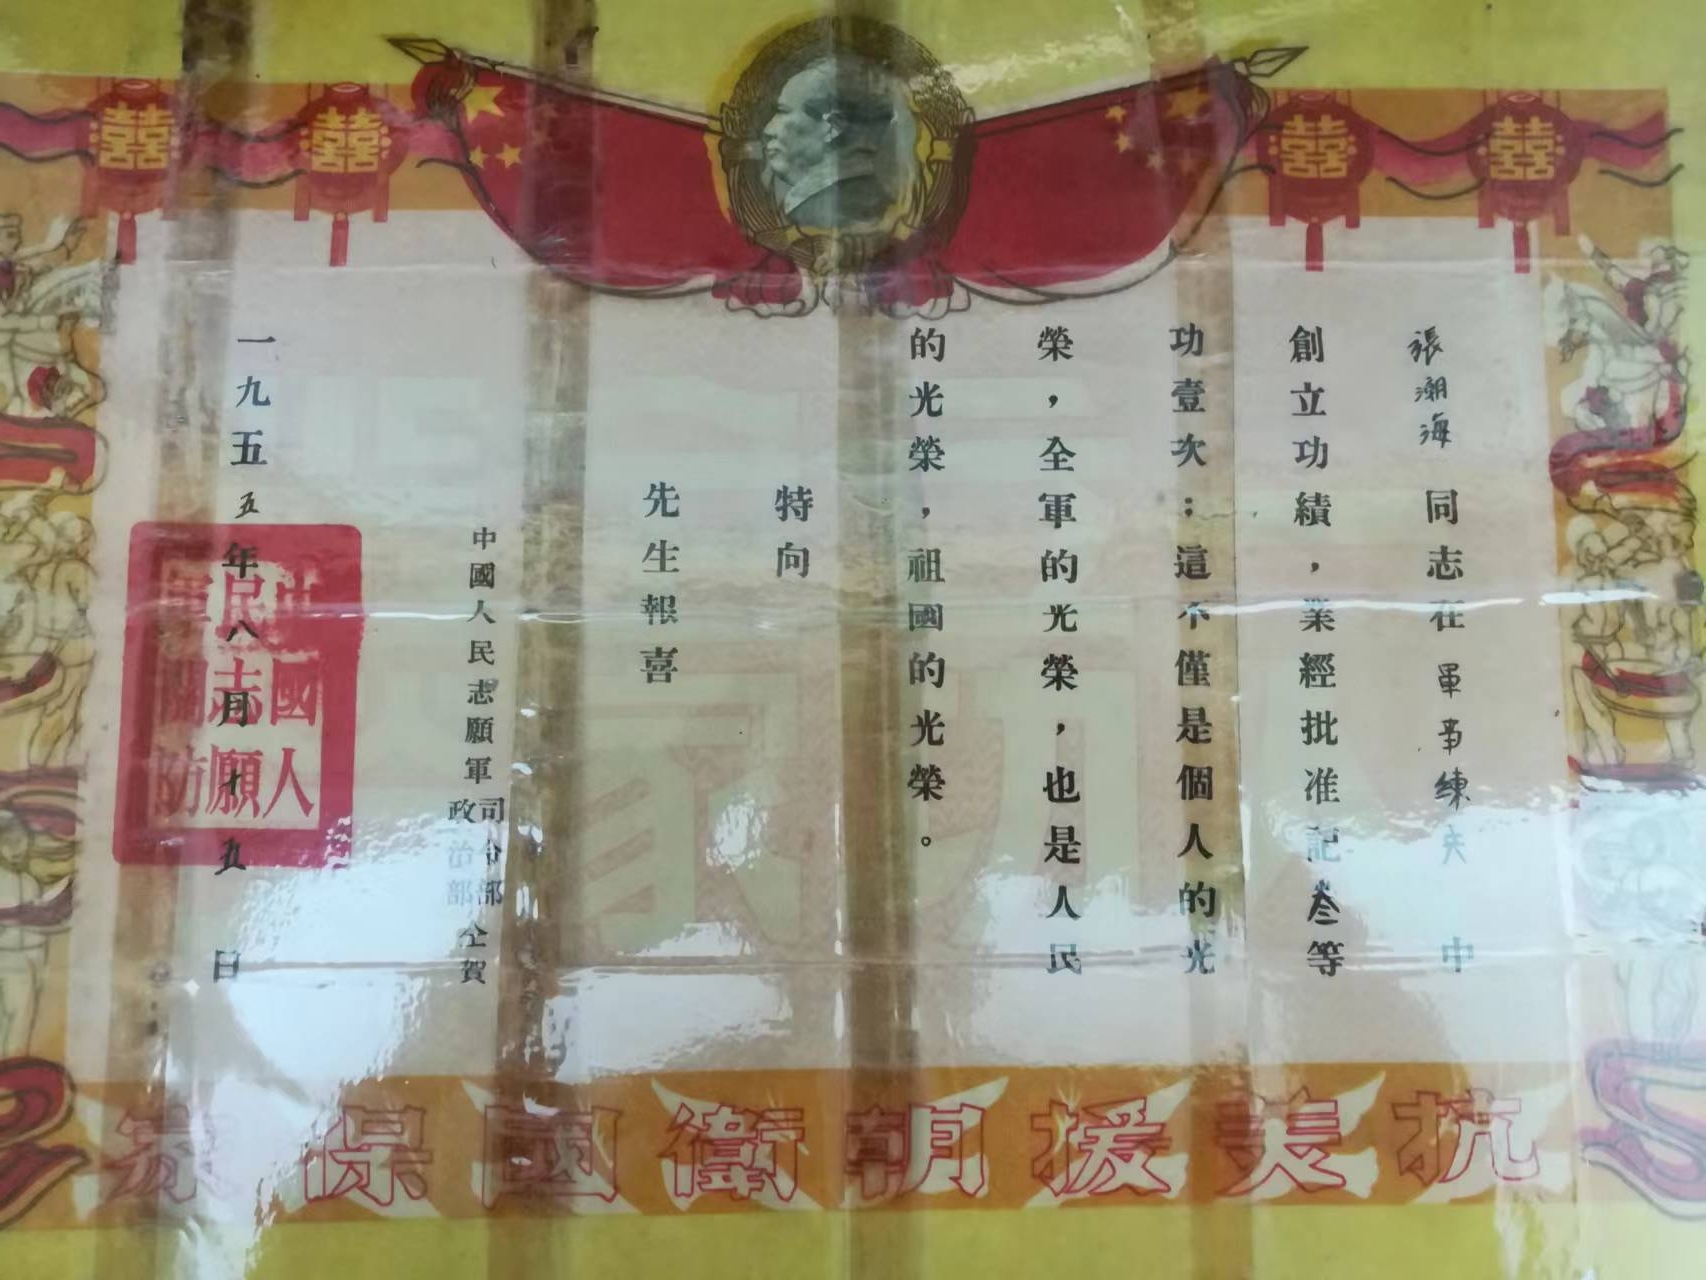 張潮海同志在軍事練兵中
創立功績，業經批准記叁等
功壹次；這不僅是個人的光
榮，全軍的光榮，也是人民
的光榮，祖國的光榮。
特向
先生報喜
中國人民志願軍司令部政治部仝賀
一九五五年八月十九日
中國人民志願軍關防
抗美援朝衛國保家
囍 囍 囍 囍